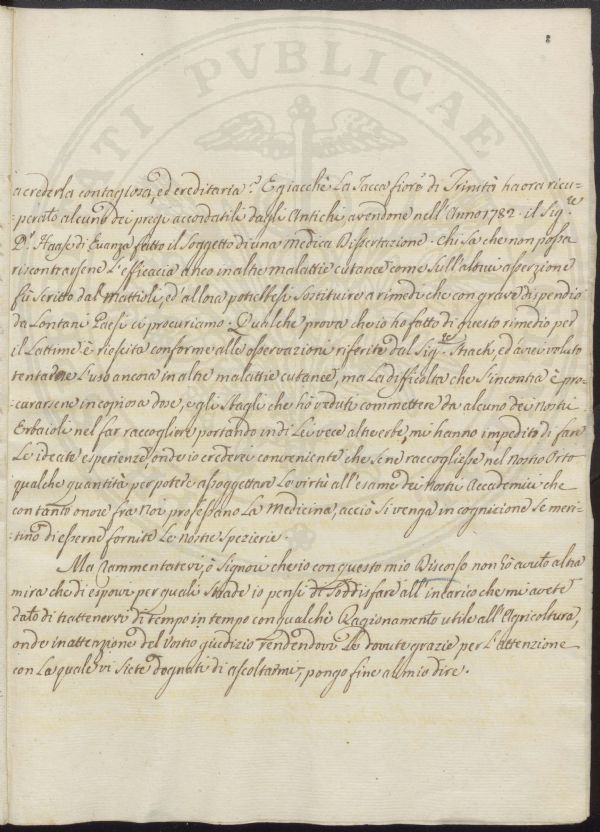 8
a crederla contagiosa, ed ereditaria? E giacchè La Jacca fiore di Trinità ha ora ricu=
=perato alcuno dei pregi accordatili dagli Antichi avendone nell'Anno 1782. il Sig.re
D.r Haase di fatto il Soggetto di una Medica Dissertazione. chi sa che non possa
riscontrarsene L'efficacia anco in altre malattie cutanee come sull'altrui asserzione
fù scritto dal Mattioli, ed allora potrebbesi sostituire a rimedi che con grave dispendio
da Lontani Paesi ci procuriamo. Qualche prova che io ho fatto di questo rimedio per
il Lattime è riescita conforme alle osservazioni riferite dal Sig.re Strack, ed avrei voluto
tentarne L'uso ancora in altre malattie cutanee, ma La difficoltà che s'incontra è pro=
curarsene in copiosa dose, e gli sbagli che hò veduti commettere da alcuno dei nostri
Erbaioli nel far raccogliere portando in di Lei vece altre erbe, mi hanno impedito di fare
Le ideate esperienze, onde io crederei conveniente che se ne raccogliesse nel nostro Orto
qualche quantità per potere assoggettare Le virtù all'esame dei nostri Accademici che
con tanto onore fra Noi professano La Medicina, acciò si venga in cognizione se meri=
=tino di esserne fornite Le nostre Spezierie.
Ma rammentatevi, ò Signori che io con questo mio Discorso non hò avuto altra
mira che di esporvi per quali strade io pensi di soddisfare all'incarico che mi avete
dato di trattenervi di tempo in tempo con qualche Ragionamento utile all'Agricoltura,
onde in attenzione del Vostro giudizio rendendovi Le dovute grazie per L'attenzione
con La quale vi siete degnati di ascoltarmi, pongo fine al mio dire.
PVBLICAE